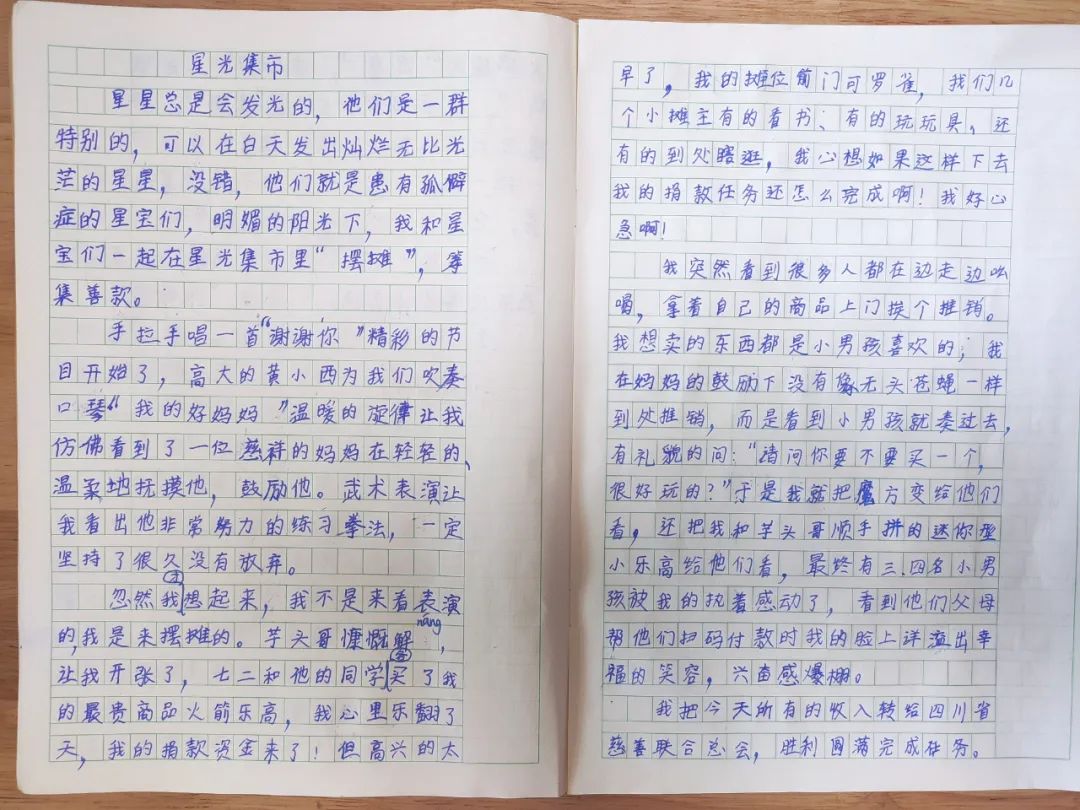 星光集市
星星总是会发光的，他们是一群
特别的，可以在白天发出灿烂无比光
茫的星星，没错，他们就是患有孤僻
症的星宝们，明媚的阳光下，我和星
宝们一起在星光集市里“摆摊”，筹
集善款。
手拉手唱一首“谢谢你”精彩的节
目开始了，高大的黄小西为我们吹奏
口琴“我的好妈妈”温暖的旋律让我
仿佛看到了一位慈祥的妈妈在轻轻的、
温柔地抚摸他，鼓励他。武术表演让
我看出他非常努力的练习拳法，一定
坚持了很久没有放弃。
忽然我想起来，我不是来看表演
的，我是来摆摊的。芋头哥慷慨解囊，
nāng
让我开张了，七二和他的同学买了我
的最贵商品火箭乐高，我心里乐翻了
天，我的捐款资金来了！但高兴的太
早了，我的摊位前门可罗雀，我们几
个小摊主有的看书、有的玩玩具，还
有的到处瞎逛，我心想如果这样下去
我的捐款任务还怎么完成啊！我好心
急啊！
我突然看到很多人都在边走边吆
喝，拿着自己的商品上门挨个推销。
我想卖的东西都是小男孩喜欢的；我
在妈妈的鼓励下没有像无头苍蝇一样
到处推销，而是看到小男孩就奏过去，
有礼貌的问：“请问你要不要买一个，
很好玩的？”于是我就把魔方变给他们
看，还把我和芋头哥顺手拼的迷你型
小乐高给他们看，最终有三、四名小男
孩被我的执着感动了，看到他们父母
帮他们扫码付款时我的脸上洋溢出幸
福的笑容，兴奋感爆棚。
我把今天所有的收入转给四川省
慈善联合总会，胜利圆满完成任务。